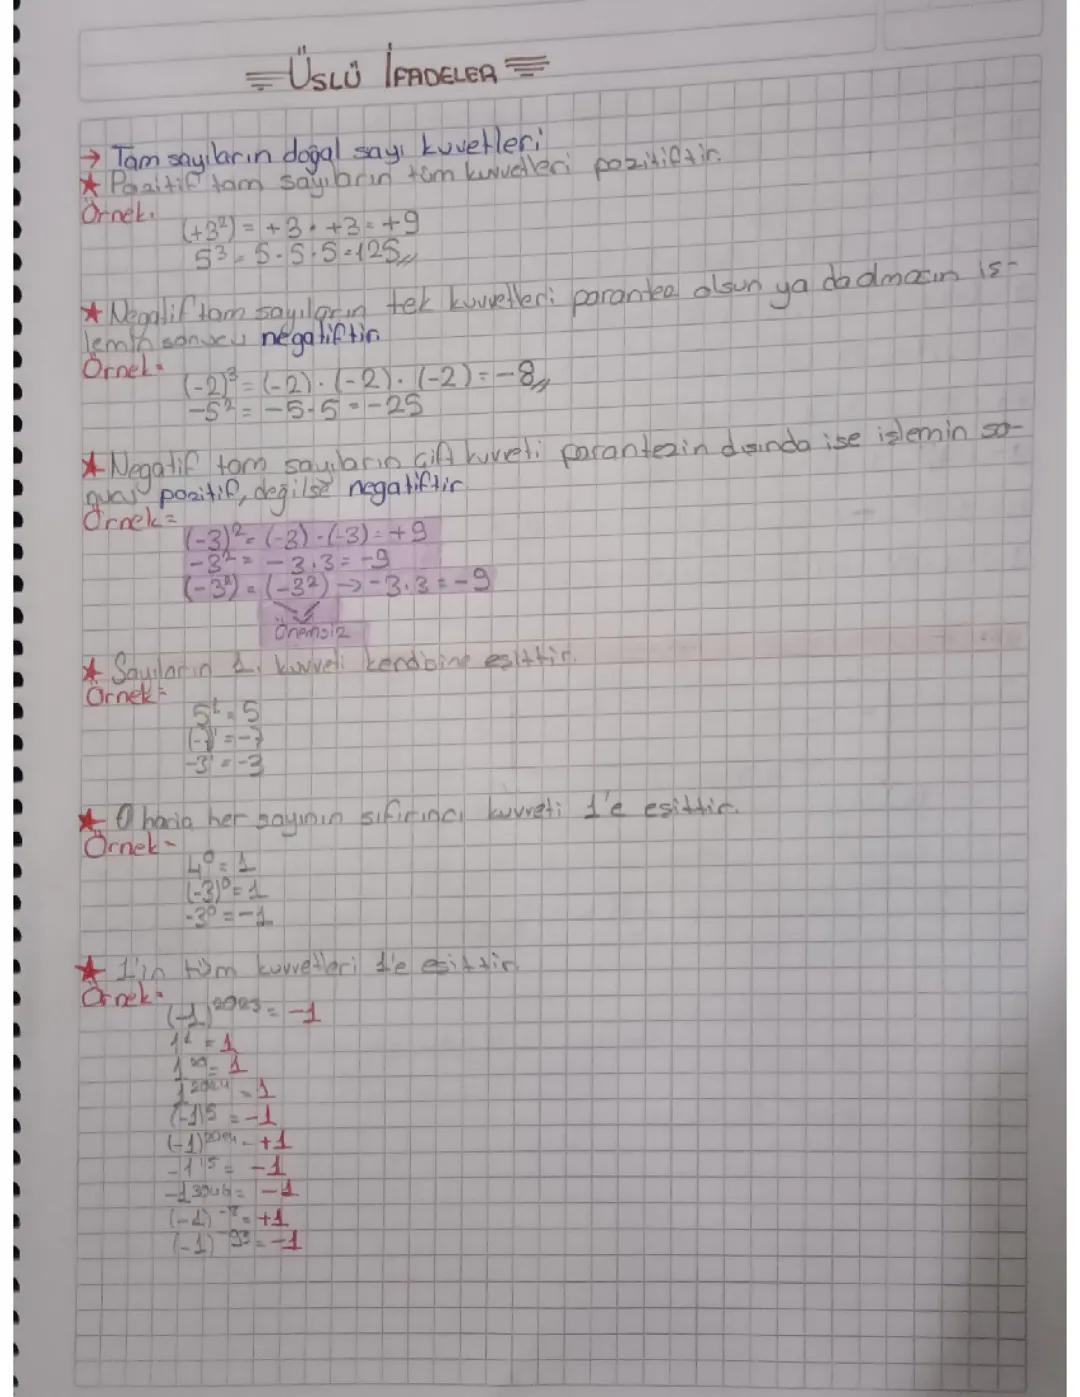 ÜSLÜ İFADELER
→ Tam sayıların doğal sayı kuvvetleri
★ Pozitif tam sayıların tüm kuvvetleri pozitiftir.
Örnek:
(+3²) = +3 · +3 = +9
5³ = 5 · 5 · 5 = 125
★ Negatif tam sayıların tek kuvvetleri parantez olsun ya da olmasın iş-
lemin sonucu negatiftir
Örnek:
(-2)³ = (-2) · (-2) · (-2) = -8
-5² = -5 · 5 = -25
★ Negatif tam sayıların çift kuvveti parantezin dışında ise işlemin so-
nucu pozitif, değilse negatiftir
Örnek =
(-3)² = (-3) · (-3) = +9
-3² = -3 · 3 = -9
(-3²) = (-3²) → -3 · 3 = -9
Önemsiz
★ Sayıların 1. kuvveti kendisine eşittir.
Örnek =
5¹ = 5
(-7)¹ = -7
-3¹ = -3
★ 0 hariç her sayının sıfırıncı kuvveti 1'e eşittir.
Örnek -
4⁰ = 1
(-3)⁰ = 1
-3⁰ = -1
★ 1'in tüm kuvvetleri 1'e eşittir.
Örnek =
(-1)²⁰²³ = -1
= 1
= 1
1²⁰²⁴ = 1
(-1)⁵ = -1
(-1)²⁰²⁴ = +1
-1¹⁵ = -1
= -1
= +1
(-1)⁻⁹³ = -1